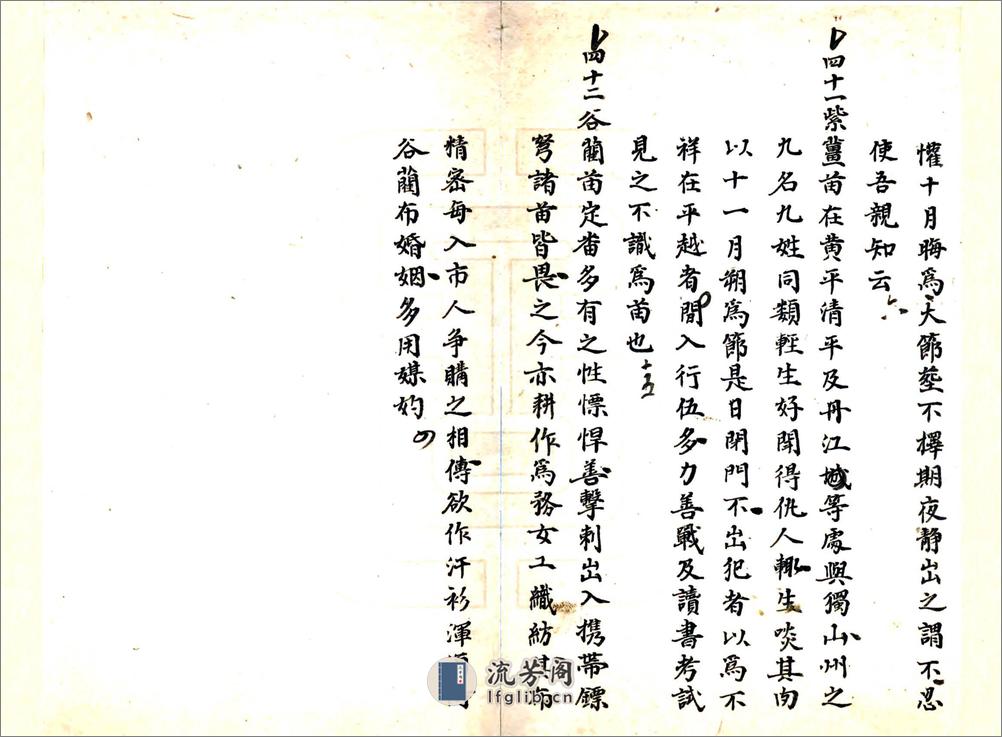 懽十月晦爲大節塟不擇期夜静出之謂不忍
使吾親知云 六
四十一紫薑苗在黄平清平及丹江城等處與獨山州之
九名九姓同類輕生好鬪得仇人輙生啖其肉
以十一月朔爲節是日閉門不出犯者以爲不
祥在平越者間入行伍多力善戰及讀書考試
見之不識爲苗也 十五
四十二谷藺苗定畨多有之性慓悍善擊刺出入携帶鏢
弩諸苗皆畏之今亦耕作爲務女工織紡其布
精密每入市人争購之相傳欲作汗衫渾
谷藺布婚姻多用媒妁
流芳阁
lfglib.cn